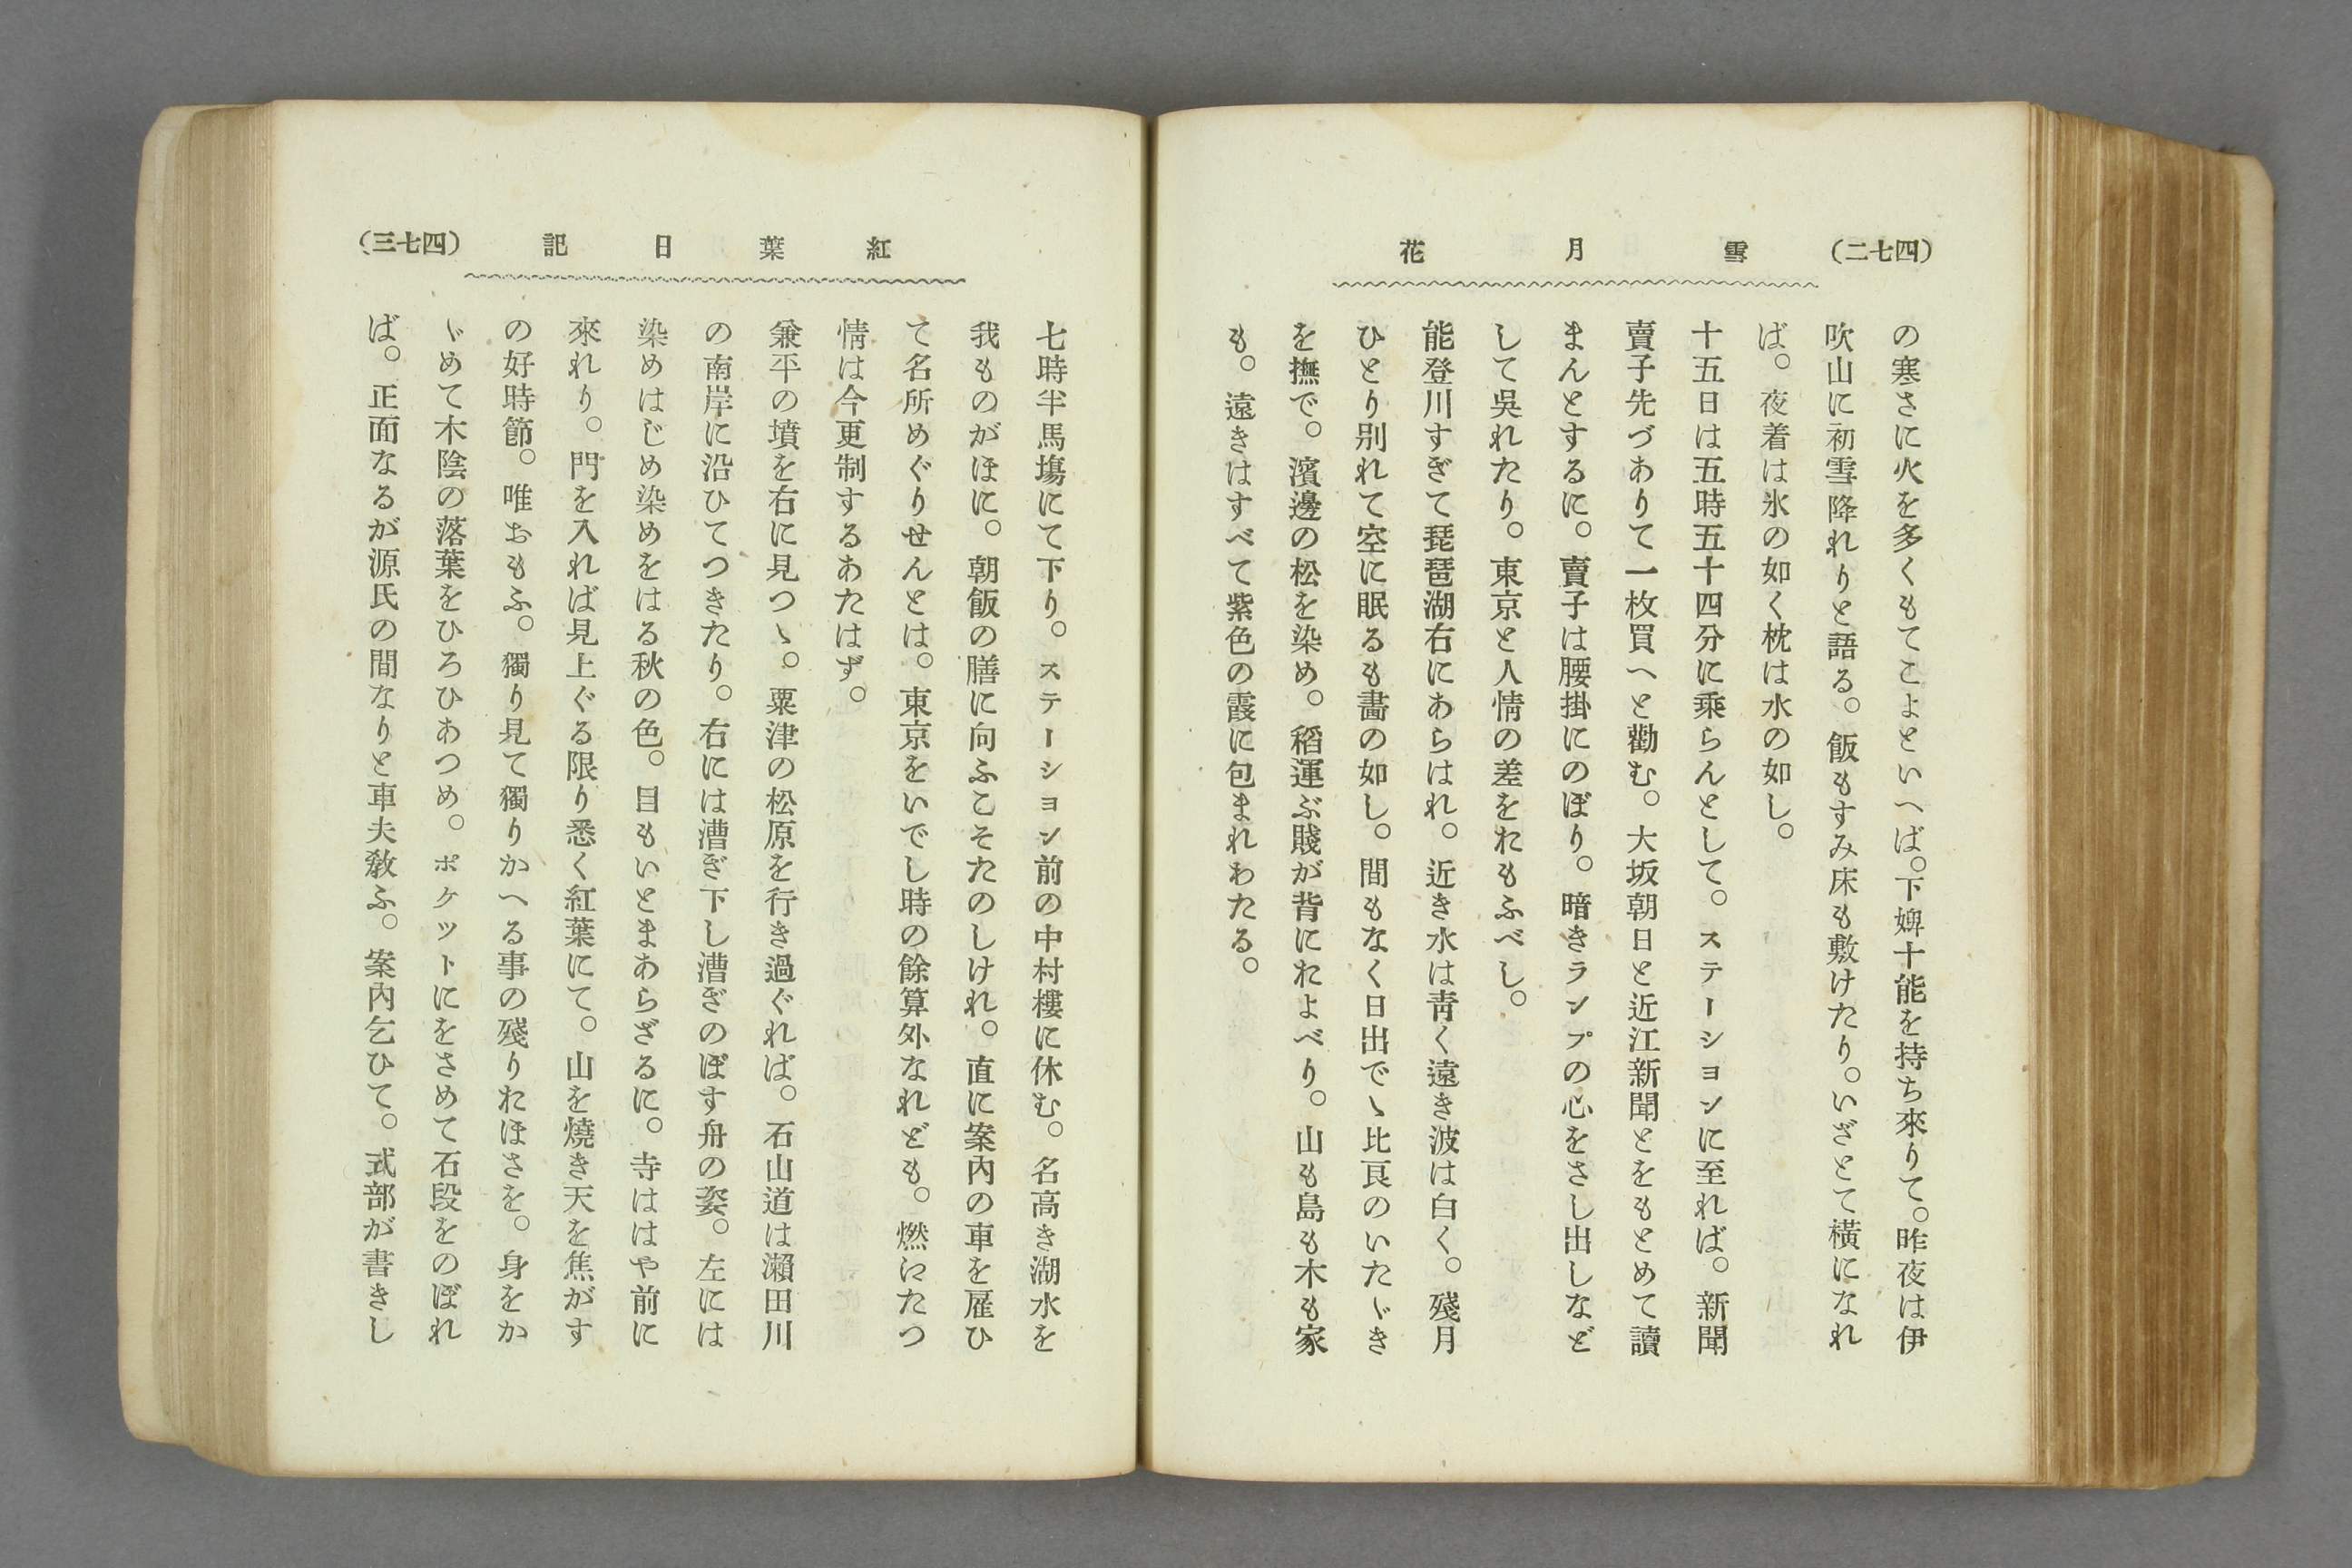 (四七二)
雪月花
の寒さに火を多くもてこよといへば。下婢十能を持ち來りて。昨夜は伊
吹山に初雪降れりと語る。飯もすみ床も敷けたり。いざとて横になれ
ば。夜着は氷の如く枕は水の如し。
十五日は五時五十四分に乘らんとして。ステーションに至れば。新聞
賣子先づありて一枚買へと勸む。大坂朝日と近江新聞とをもとめて讀
まんとするに。賣子は腰掛にのぼり。暗きランプの心をさし出しなど
して吳れたり。東京と人情の差をおもふべし。
能登川すぎて琵琶湖右にあらはれ。近き水は靑く遠き波は白く。殘月
ひとり別れて空に眠るも畵の如し。間もなく日出でゝ比良のいたゞき
を撫で。濱邊の松を染め。稻運ぶ賤が背におよべり。山も島も木も家
も。遠きはすべて紫色の霞に包まれわたる。
紅葉日記
(四七三)
七時半馬塲にて下り。ステーション前の中村樓に休む。名高き湖水を
我ものがほに。朝飯の膳に向ふこそたのしけれ。直に案內の車を雇ひ
て名所めぐりせんとは。東京をいでし時の餘算外なれども。燃にたつ
情は今更制するあたはず。
兼平の墳を右に見つゝ。粟津の松原を行き過ぐれば。石山道は瀨田川
の南岸に沿ひてつきたり。右には漕ぎ下し漕ぎのぼす舟の姿。左には
染めはじめ染めをはる秋の色。目もいとまあらざるに。寺ははや前に
來れり。門を入れば見上ぐる限り悉く紅葉にて。山を燒き天を焦がす
の好時節。唯おもふ。獨り見て獨りかへる事の殘りおほさを。身をか
ゞめて木陰の落葉をひろひあつめ。ポケットにをさめて石段をのぼれ
ば。正面なるが源氏の間なりと車夫敎ふ。案內乞ひて。式部が書きし